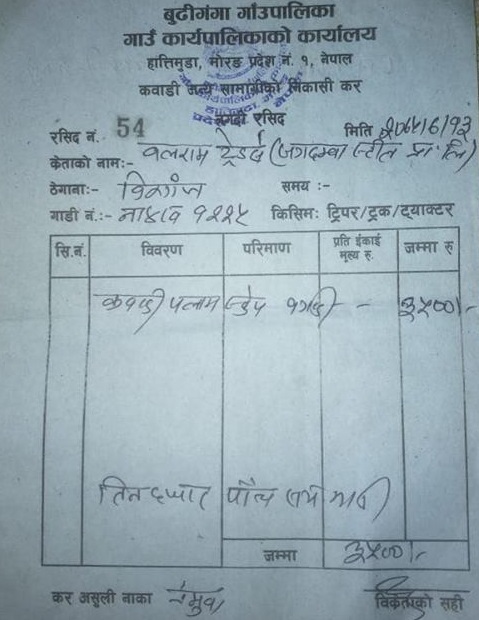 बुढीगंगा गाँउपालिका
गाउँ कार्यपालिकाको कार्यालय
हात्तिमुडा, मोरङ प्रदेश नं. १, नेपाल
कवाडी जन्य सामाग्रीको निकासी कर
नगदी रसिद
रसिद नं. 54 मिति
क्रेताको नाम:- बलराम ट्रेडर्स (जगदम्बा स्टील प्रा. लि)
ठेगाना:- समय :-
गाडी नं.:- किसिम: ट्रिपर/ट्रक/ट्याक्टर
सि.नं. विवरण परिमाण प्रति ईकाई मूल्य रु. जम्मा रु
कवाडी ३५००/-
तिन हजार पाँच सय मात्र
जम्मा ३५००/-
कर असुली नाका विक्रेताको सही